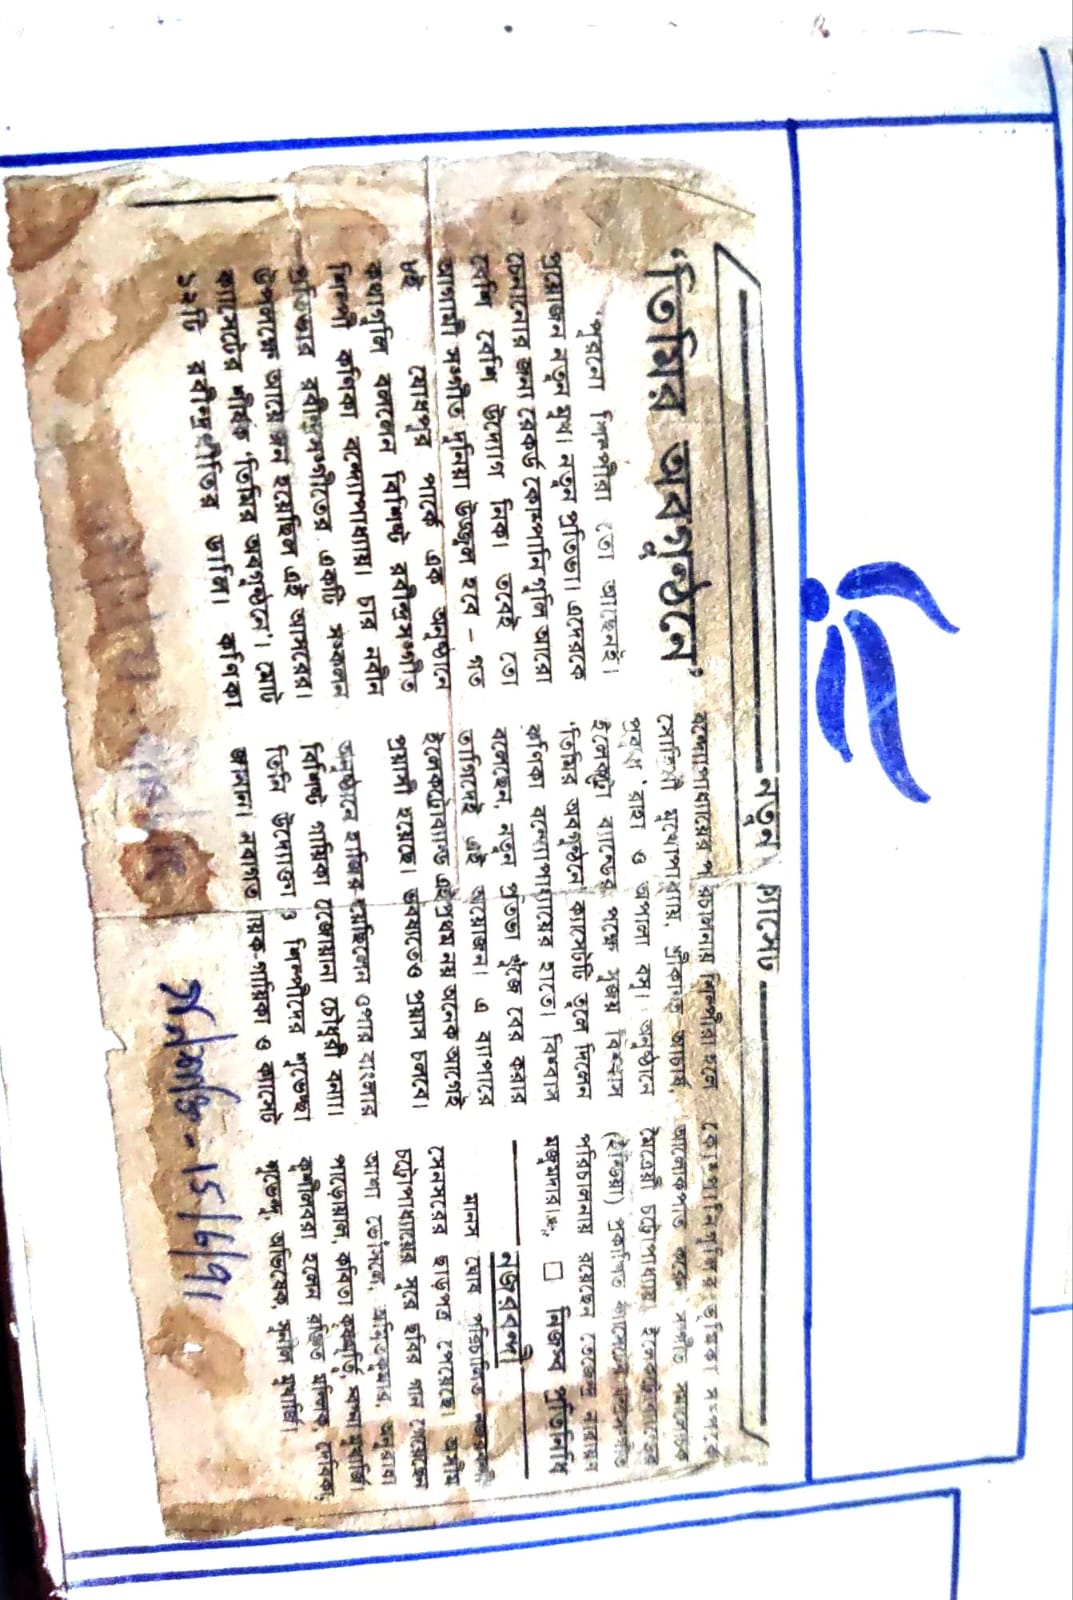 নতুন ক্যাসেট
‘তিমির অবগুণ্ঠনে’
‘পুরনো শিল্পীরা তো আছেনই।
প্রয়োজন নতুন মুখ। নতুন প্রতিভা। এদেরকে
চেনানোর জন্য রেকর্ড কোম্পানি গুলি আরো
বেশি বেশি উদ্যোগ নিক। তবেই তো
আগামী সংগীত দুনিয়া উজ্জ্বল হবে – গত
৮ই যোধপুর পার্কে এক অনুষ্ঠানে
কথাগুলি বললেন বিশিষ্ট রবীন্দ্রসংগীত
শিল্পী কণিকা বন্দ্যোপাধ্যায়। চার নবীন
প্রতিভার রবীন্দ্রসংগীতের একটি সংকলন
উপলক্ষে আয়োজন হয়েছিল এই আসরের।
ক্যাসেটের শীর্ষক ‘তিমির অবগুণ্ঠনে’। মোট
১২টি রবীন্দ্রগীতির ডালি। কণিকা
বন্দ্যোপাধ্যায়ের পরিচালনায় শিল্পীরা হলে
মুখোপাধ্যায়, শ্রীকান্ত আচার্য,
প্রবুদ্ধ রাহা ও অপালা বসু। অনুষ্ঠানে
ইলেকট্রো ব্যান্ডের পক্ষে সুজয় বিশ্বাস
‘তিমির অবগুণ্ঠনে’ ক্যাসেটটি তুলে দিলেন
কণিকা বন্দ্যোপাধ্যায়ের হাতে। বিশ্বাস
বলেছেন, নতুন প্রতিভা খুঁজে বের করার
তাগিদেই এই আয়োজন। এ ব্যাপারে
ইলেকট্রোব্যান্ড এই প্রথম নয় অনেক আগেই
প্রয়াসী হয়েছে। ভবিষ্যতেও প্রয়াস চলবে।
অনুষ্ঠানে হাজির হয়েছিলেন ওপার বাংলার
বিশিষ্ট গায়িকা রেজোয়ানা চৌধুরী বন্যা।
তিনি উদ্যোক্তা ও শিল্পীদের শুভেচ্ছা
জানান। নবাগত গায়ক-গায়িকা ও ক্যাসেট
কোম্পানিগুলির ভূমিকা সম্পর্কে
আলোকপাত করেন সংগীত সমালোচক
মৈত্রেয়ী চট্টোপাধ্যায়। ইলেকট্রোব্যান্ডের
(ইন্ডিয়া) প্রকাশিত ক্যাসেটের যন্ত্রসংগীত
পরিচালনায় রয়েছেন তেজেন্দ্র নারায়ণ
মজুমদার। □ নিজস্ব প্রতিনিধি
নজরবন্দী
মানস ঘোষ পরিচালিত নজরবন্দী
সেনসরের ছাড়পত্র পেয়েছে। অসীম
চট্টোপাধ্যায়ের সুরে ছবির গান গেয়েছেন
আশা ভোঁসলে, অমিতকুমার, অনুরাধা
পাড়োয়াল, কবিতা কৃষ্ণমূর্তি, স্বপ্না মুখার্জি।
কুশীলবরা হলেন রঞ্জিত মল্লিক, দেবিকা,
শুভেন্দু, অভিষেক, সুনীল মুখার্জি।
গণশক্তি - 15/6/91